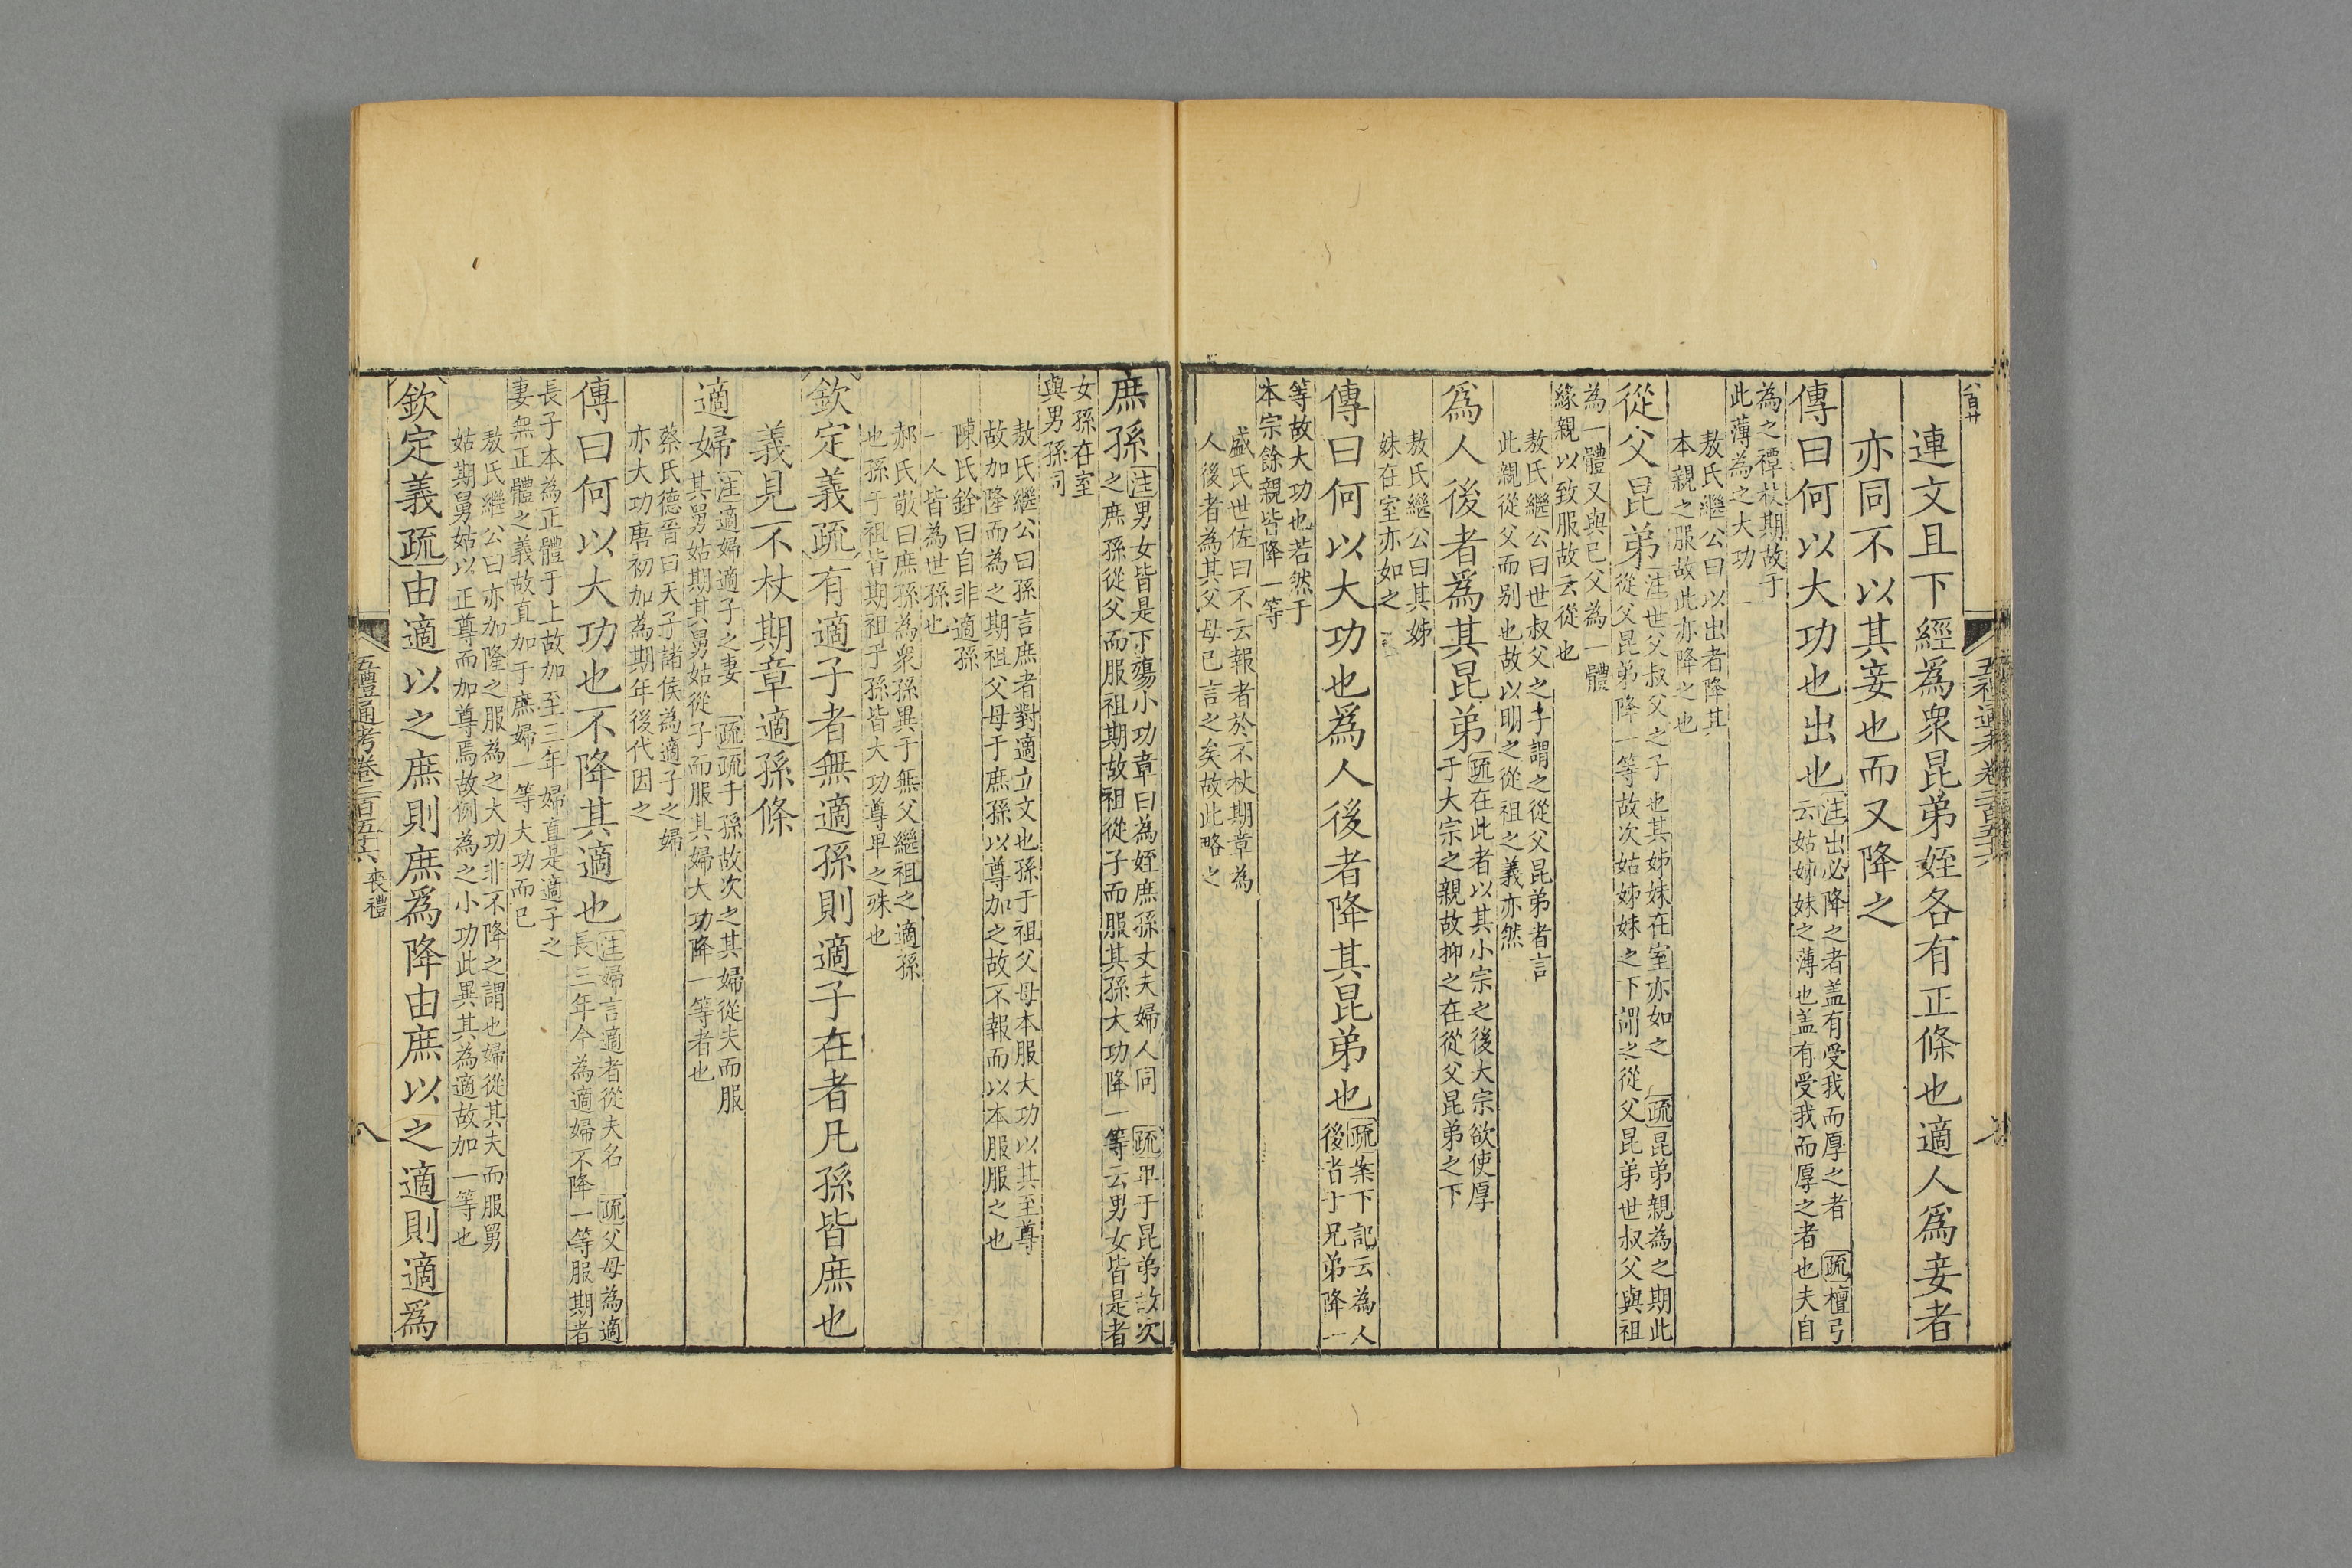 連文且下經爲衆昆弟姪各有正條也適人爲妾者
亦同不以其妾也而又降之
傳曰何以大功也出也
注出必降之者盖有受我而厚之者 疏檀弓
云姑姊妹之薄也盖有受我而厚之者也夫自
為之禫杖期故于
此薄為之大功
敖氏繼公曰以出者降其
本親之服故此亦降之也
從父昆弟
注世父叔父之子也其姊妹在室亦如之 疏昆弟親為之期此
從父昆弟降一等故次姑姊妹之下謂之從父昆弟世叔父與祖
為一體又與已父為一體
緣親以致服故云從也
敖氏繼公曰世叔父之子謂之從父昆弟者言
此親從父而别也故以明之從祖之義亦然
爲人後者爲其昆弟
疏在此者以其小宗之後大宗欲使厚
于大宗之親故抑之在從父昆弟之下
敖氏繼公曰其姊
妹在室亦如之
傳曰何以大功也爲人後者降其昆弟也
疏案下記云為人
後者于兄弟降一
等故大功也若然于
本宗餘親皆降一等
盛氏世佐曰不云報者於不杖期章為
人後者為其父母已言之矣故此略之
庶孫
注男女皆是下殤小功章曰為姪庶孫丈夫婦人同 疏卑于昆弟故次
之庶孫從父而服祖期故祖從子而服其孫大功降一等云男女皆是者
女孫在室
與男孫同
敖氏繼公曰孫言庶者對適立文也孫于祖父母本服大功以其至尊
故加隆而為之期祖父母于庶孫以尊加之故不報而以本服服之也
陳氏銓曰自非適孫
一人皆為世孫也
郝氏敬曰庶孫為衆孫異于無父繼祖之適孫
也孫于祖皆期祖于孫皆大功尊卑之殊也
欽定義疏有適子者無適孫則適子在者凡孫皆庶也
義見不杖期章適孫條
適婦
注適婦適子之妻 疏疏于孫故次之其婦從夫而服
其舅姑期其舅姑從子而服其婦大功降一等者也
蔡氏德晉曰天子諸侯為適子之婦
亦大功唐初加為期年後代因之
傳曰何以大功也不降其適也
注婦言適者從夫名 疏父母為適
長三年今為適婦不降一等服期者
長子本為正體于上故加至三年婦直是適子之
妻無正體之義故直加于庶婦一等大功而已
敖氏繼公曰亦加隆之服為之大功非不降之謂也婦從其夫而服舅
姑期舅姑以正尊而加尊焉故例為之小功此異其為適故加一等也
欽定義疏由適以之庶則庶爲降由庶以之適則適爲
五禮通考卷二百五十六 喪禮
八